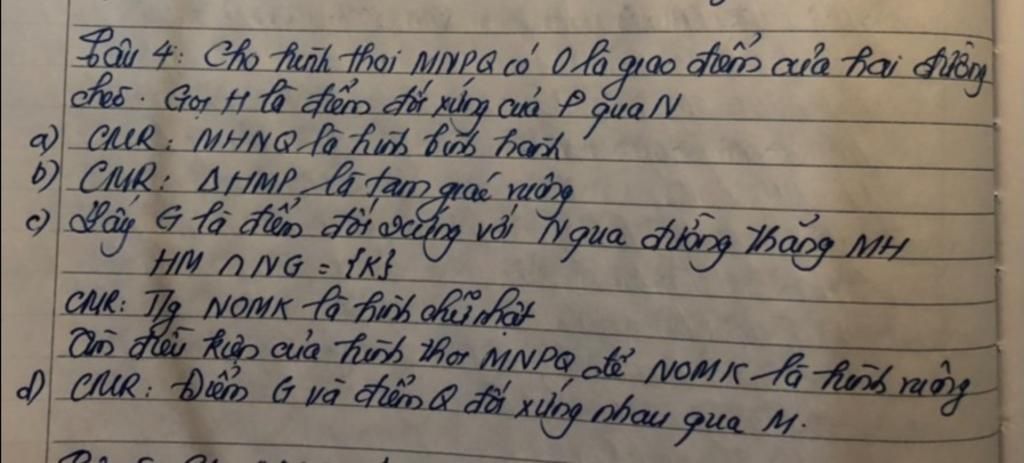 Câu 4: Cho hình thoi MNPQ có O là giao điểm của hai đường
chéo. Gọi H là điểm đối xứng của P qua N
a) CMR: MHNQ là hình bình hành
b) CMR: ΔHMP là tam giác vuông
c) Lấy G là điểm đối xứng với N qua đường thẳng MH
HM ∩ NG = {K}
CMR: Tg NOMK là hình chữ nhật
Tìm điều kiện của hình thoi MNPQ để NOMK là hình vuông
d) CMR: Điểm G và điểm Q đối xứng nhau qua M.